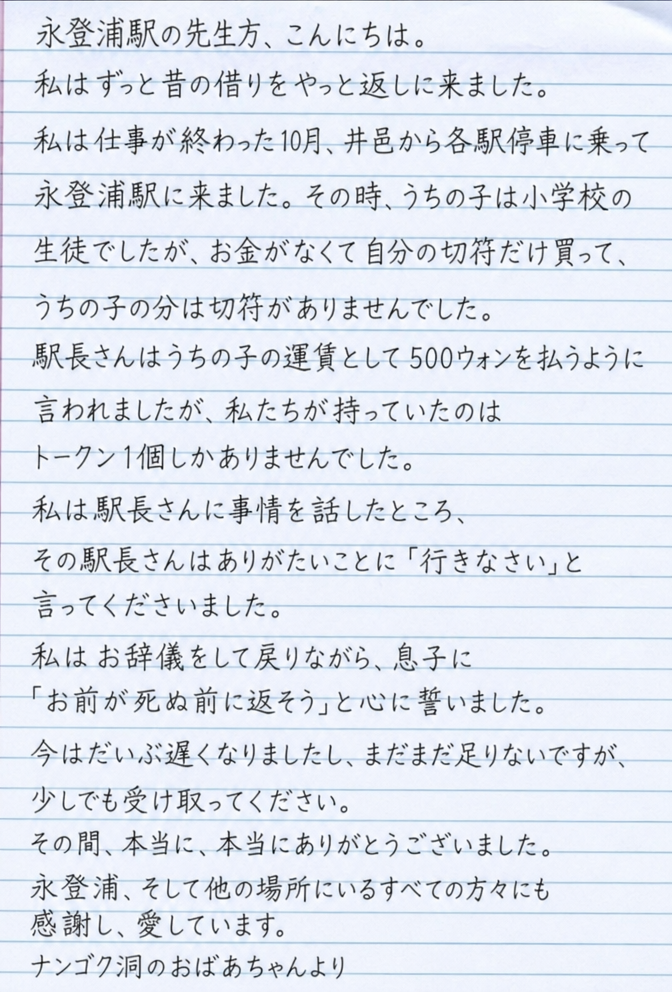 永登浦駅の先生方、こんにちは。
私はずっと昔の借りをやっと返しに来ました。
私は仕事が終わった10月、井邑から各駅停車に乗って
永登浦駅に来ました。その時、うちの子は小学校の
生徒でしたが、お金がなくて自分の切符だけ買って、
うちの子の分は切符がありませんでした。
駅長さんはうちの子の運賃として500ウォンを払うように
言われましたが、私たちが持っていたのは
トークン1個しかありませんでした。
私は駅長さんに事情を話したところ、
その駅長さんはありがたいことに「行きなさい」と
言ってくださいました。
私はお辞儀をして戻りながら、息子に
「お前が死ぬ前に返そう」と心に誓いました。
今はだいぶ遅くなりましたし、まだまだ足りないですが、
少しでも受け取ってください。
その間、本当に、本当にありがとうございました。
永登浦、そして他の場所にいるすべての方々にも
感謝し、愛しています。
ナンゴク洞のおばあちゃんより